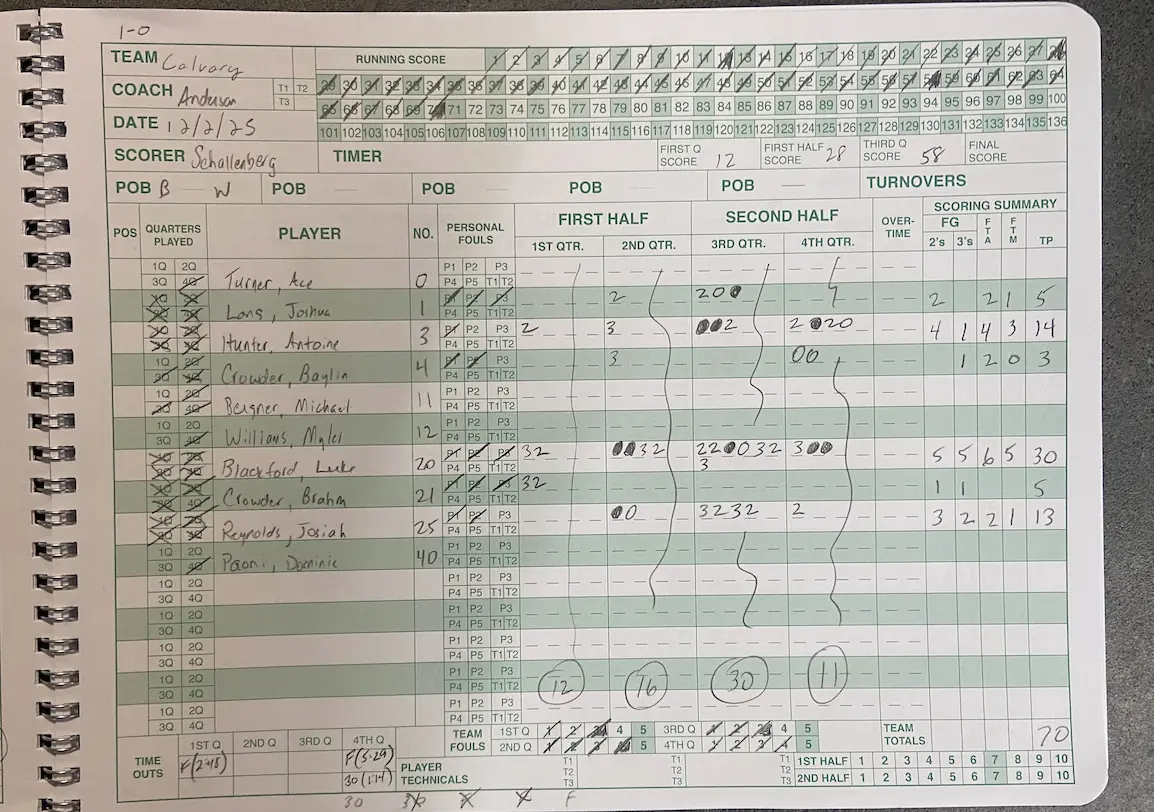 1-0
TEAM Calvary RUNNING SCORE 1 2 3 4 5 6 7 8 9 10 11 12 13 14 15 16 17 18 19 20 21 22 23 24 25 26 27 28
COACH Anderson T1 T2 T3 29 30 31 32 33 34 35 36 37 38 39 40 41 42 43 44 45 46 47 48 49 50 51 52 53 54 55 56 57 58 59 60 61 62 63 64
65 66 67 68 69 70 71 72 73 74 75 76 77 78 79 80 81 82 83 84 85 86 87 88 89 90 91 92 93 94 95 96 97 98 99 100
DATE 12/2/25 101 102 103 104 105 106 107 108 109 110 111 112 113 114 115 116 117 118 119 120 121 122 123 124 125 126 127 128 129 130 131 132 133 134 135 136
SCORER Schallenberg TIMER FIRST Q SCORE 12 FIRST HALF SCORE 28 THIRD Q SCORE 58 FINAL SCORE
POB B - W POB - POB - POB - POB - TURNOVERS
POS QUARTERS PLAYED PLAYER NO. PERSONAL FOULS FIRST HALF SECOND HALF OVER-TIME SCORING SUMMARY
1ST QTR. 2ND QTR. 3RD QTR. 4TH QTR. FG 2's 3's FTA FTM TP
1Q 2Q P1 P2 P3
3Q 4Q Turner, Ace 0 P4 P5 T1 T2
1Q 2Q P1 P2 P3 2 200 2 2 1 5
3Q 4Q Lang, Joshua 1 P4 P5 T1 T2
1Q 2Q P1 P2 P3 2 3 002 2 020 4 1 4 3 14
3Q 4Q Hunter, Antoine 3 P4 P5 T1 T2
1Q 2Q P1 P2 P3 3 00 1 2 0 3
3Q 4Q Crowder, Baylin 4 P4 P5 T1 T2
1Q 2Q P1 P2 P3
3Q 4Q Bergner, Michael 11 P4 P5 T1 T2
1Q 2Q P1 P2 P3
3Q 4Q Williams, Myles 12 P4 P5 T1 T2
1Q 2Q P1 P2 P3 32 0032 220032 300 5 5 6 5 30
3Q 4Q Blackford, Luke 20 P4 P5 T1 T2 3
1Q 2Q P1 P2 P3 32 1 1 5
3Q 4Q Crowder, Brahm 21 P4 P5 T1 T2
1Q 2Q P1 P2 P3 00 3232 2 3 2 2 1 13
3Q 4Q Reynolds, Josiah 25 P4 P5 T1 T2
1Q 2Q P1 P2 P3
3Q 4Q Paoni, Dominic 40 P4 P5 T1 T2
1Q 2Q P1 P2 P3
3Q 4Q P4 P5 T1 T2
1Q 2Q P1 P2 P3
3Q 4Q P4 P5 T1 T2
1Q 2Q P1 P2 P3
3Q 4Q P4 P5 T1 T2
1Q 2Q P1 P2 P3
3Q 4Q P4 P5 T1 T2 12 16 30 11
1Q 2Q P1 P2 P3
3Q 4Q P4 P5 T1 T2
TIME OUTS 1ST Q 2ND Q 3RD Q 4TH Q TEAM FOULS 1ST Q 1 2 3 4 5 3RD Q 1 2 3 4 5 TEAM TOTALS 70
F(2:48) F(5:29) 2ND Q 1 2 3 4 5 4TH Q 1 2 3 4 5
30 (1:14) PLAYER TECHNICALS T1 T2 T3 T1 T2 T3 T1 T2 T3 1ST HALF 1 2 3 4 5 6 7 8 9 10
2ND HALF 1 2 3 4 5 6 7 8 9 10
30 F